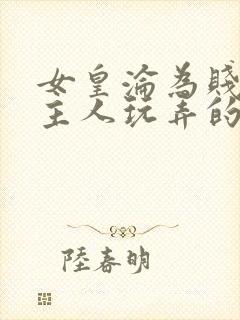 女皇淪為賤
主人玩弄的
陸春明